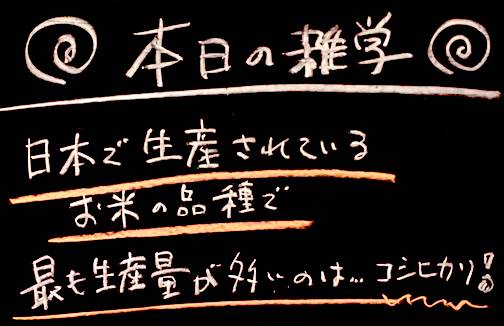 本日の雑学
日本で生産されている
お米の品種で
最も生産量が多いのは…コシヒカリ!